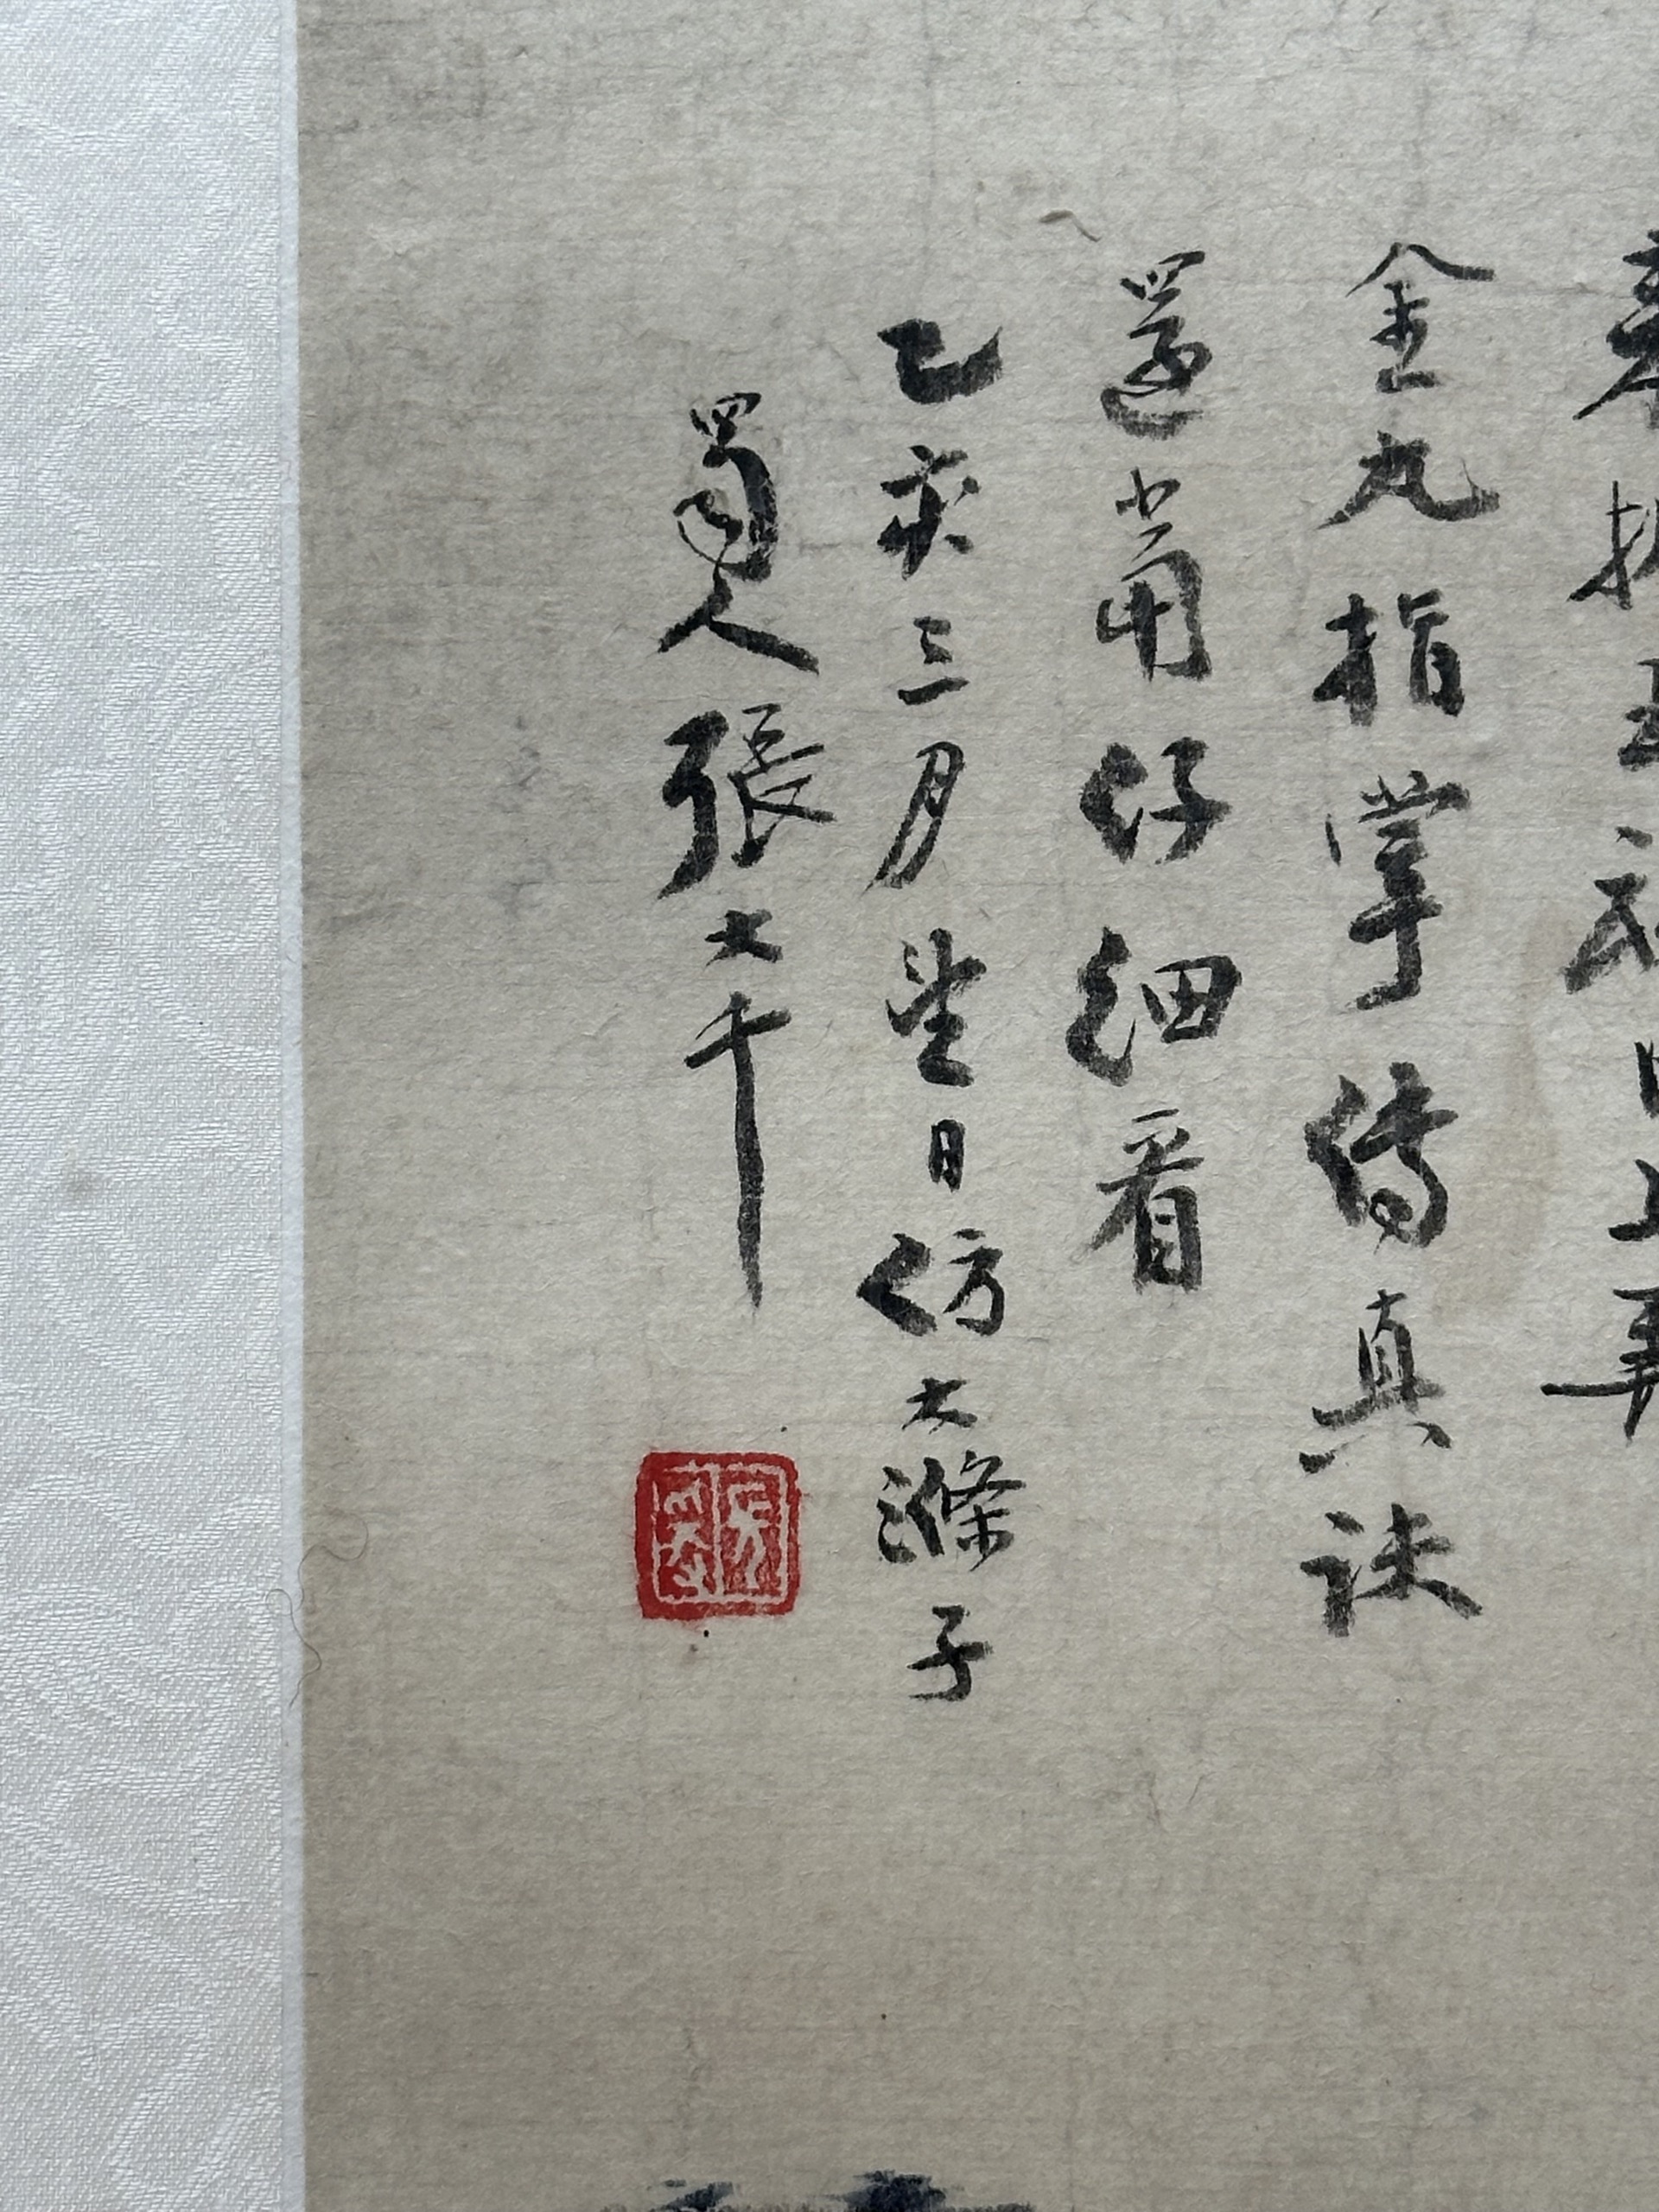 金丸指掌傳真訣
還當仔細看
乙亥三月望日仿大滌子
蜀人張大千